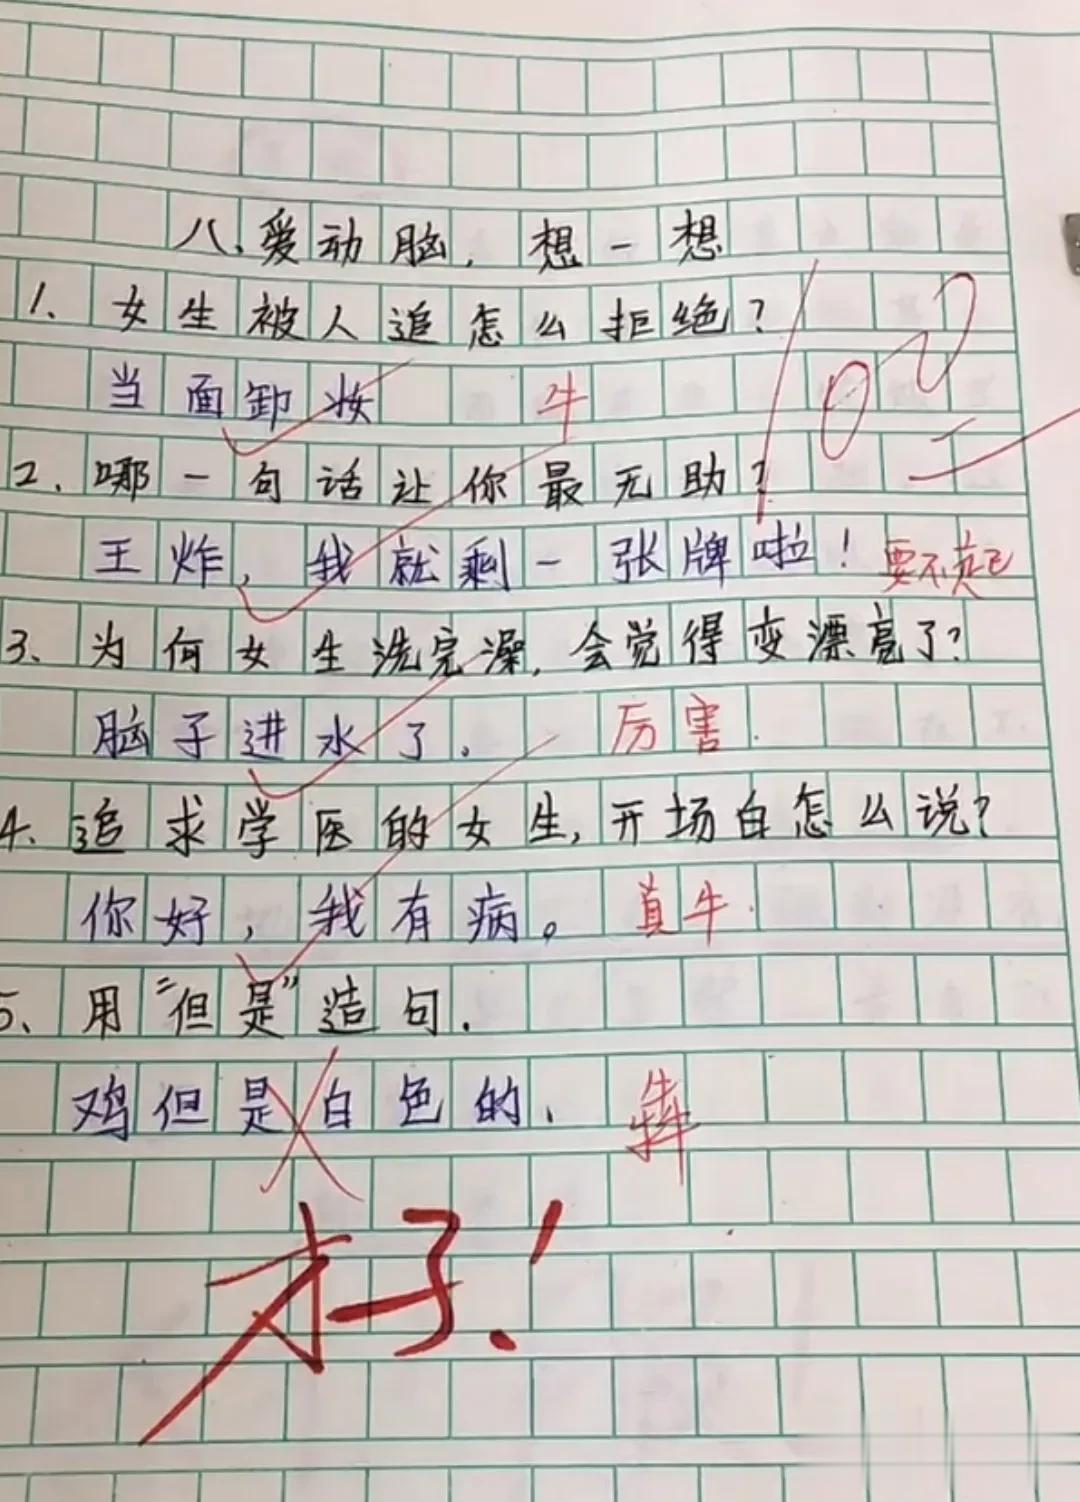 八、爱动脑，想一想
1、女生被人追怎么拒绝？
当面卸妆 牛
100
2、哪一句话让你最无助？
王炸，我就剩一张牌啦！ 要不起
3、为何女生洗完澡，会觉得变漂亮了？
脑子进水了。 厉害.
4、追求学医的女生，开场白怎么说？
你好，我有病。 真牛.
5、用“但是”造句.
鸡但是白色的、 犇
才子！